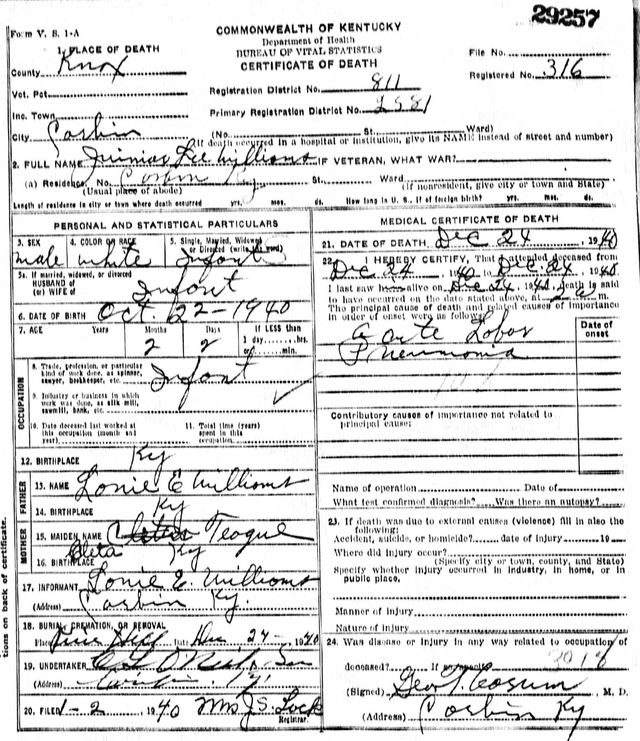 29257
Form V. S. 1-A
COMMONWEALTH OF KENTUCKY
Department of Health
BUREAU OF VITAL STATISTICS
CERTIFICATE OF DEATH
File No.
Registered No. 316
1. PLACE OF DEATH
County Knox
Vot. Pct
Inc. Town
City Corbin
Registration District No. 811
Primary Registration District No. 2581
(No. St. Ward)
(If death occurred in a hospital or institution, give its NAME instead of street and number)
2. FULL NAME Lee Williams IF VETERAN, WHAT WAR?
(a) Residence, No. Corbin Ky St. Ward
(Usual place of abode) (If nonresident, give city or town and State)
Length of residence in city or town where death occurred yrs. mos. ds. How long in U. S., if of foreign birth? yrs. mos. ds.
PERSONAL AND STATISTICAL PARTICULARS
3. SEX 4. COLOR OR RACE 5. Single, Married, Widowed or Divorced (write the word)
male white Infant
5a. If married, widowed, or divorced
HUSBAND of
(or) WIFE of Infant
6. DATE OF BIRTH Oct. 22-1940
7. AGE Years Months Days If LESS than
2 2 1 day hrs.
or min.
OCCUPATION
8. Trade, profession, or particular kind of work done, as spinner, sawyer, bookkeeper, etc. Infant
9. Industry or business in which work was done, as silk mill, sawmill, bank, etc.
10. Date deceased last worked at this occupation (month and year)
11. Total time (years) spent in this occupation
12. BIRTHPLACE Ky
FATHER
13. NAME Lonie E Williams
14. BIRTHPLACE Ky
MOTHER
15. MAIDEN NAME Teague
Cleta
16. BIRTHPLACE Ky
17. INFORMANT Lonie E. Williams
(Address) Corbin Ky.
18. BURIAL, CREMATION, OR REMOVAL
Place Pine Hill Date 24-1940
19. UNDERTAKER O'Neil & Son
(Address) Corbin, Ky.
20. FILED 1-2 1940 Mrs J.S. Lock
Registrar.
MEDICAL CERTIFICATE OF DEATH
21. DATE OF DEATH, Dec 24, 1940
22. I HEREBY CERTIFY, That I attended deceased from
Dec 24 1940 to Dec. 24 1940
I last saw him alive on Dec 24 1940, death is said
to have occurred on the date stated above, at 2 a m.
The principal cause of death and related causes of importance
in order of onset were as follows:
Date of onset
acute Lobar
Pneumonia
Contributory causes of importance not related to
principal cause:
Name of operation Date of
What test confirmed diagnosis? Was there an autopsy?
23. If death was due to external causes (violence) fill in also the
following:
Accident, suicide, or homicide? date of injury 19
Where did injury occur?
(Specify city or town, county, and State)
Specify whether injury occurred in industry, in home, or in
public place.
Manner of injury
Nature of injury
24. Was disease or injury in any way related to occupation of
deceased? If so, specify
(Signed) M. D.
(Address) Corbin Ky
tions on back of certificate.